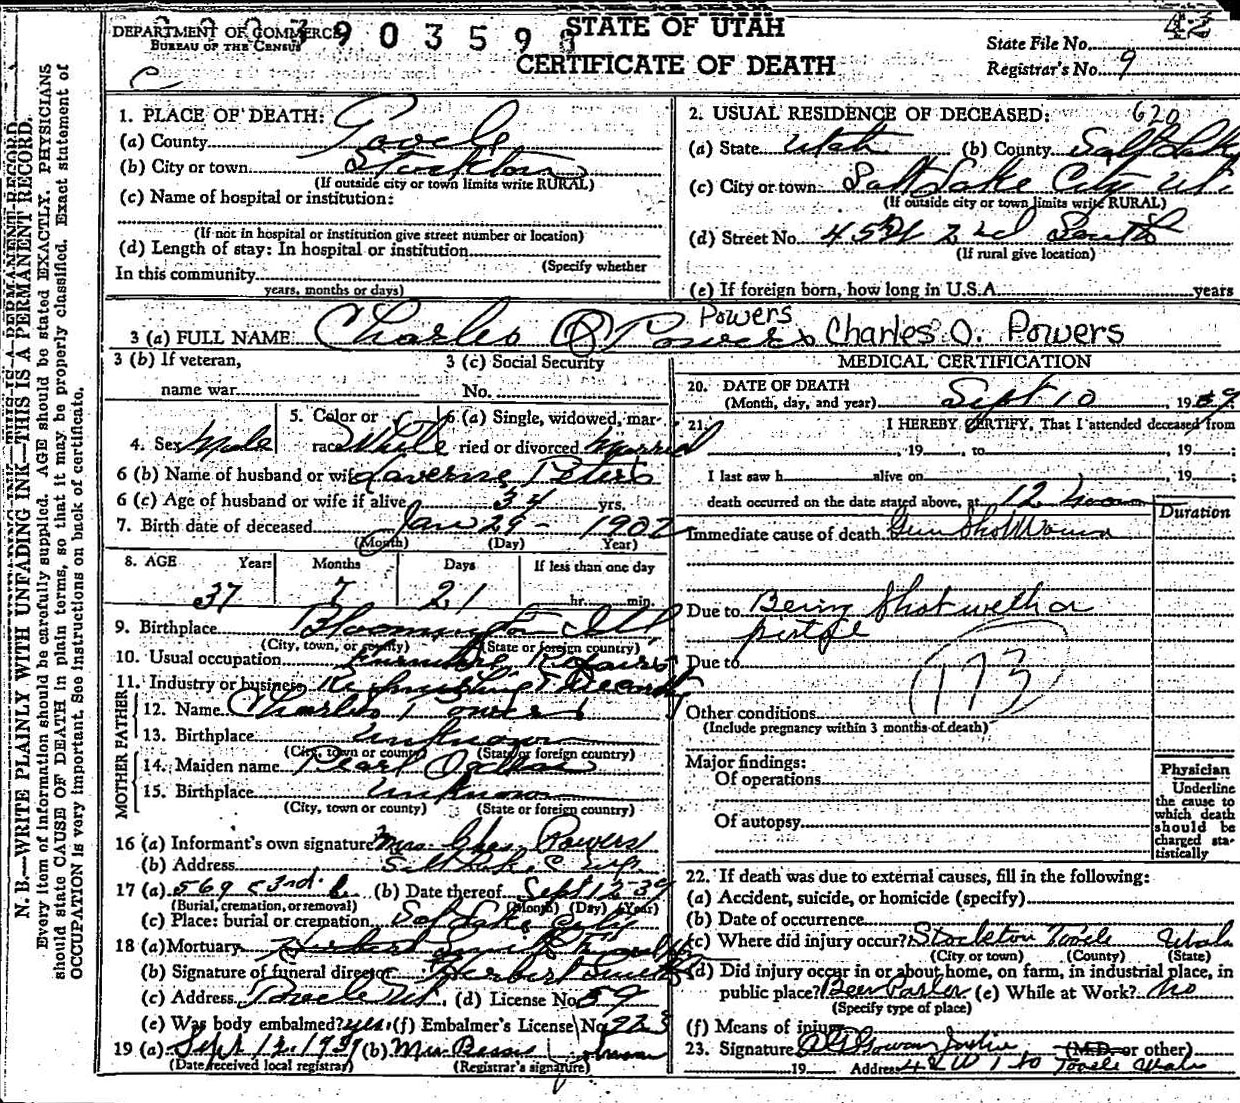 DEPARTMENT OF COMMERCE
BUREAU OF THE CENSUS
3903598
STATE OF UTAH
CERTIFICATE OF DEATH
State File No.
Registrar's No. 9
N. B.—WRITE PLAINLY WITH UNFADING INK—THIS IS A PERMANENT RECORD.
Every item of information should be carefully supplied. AGE should be stated EXACTLY. PHYSICIANS
should state CAUSE OF DEATH in plain terms, so that it may be properly classified. Exact statement of
OCCUPATION is very important. See instructions on back of certificate.
1. PLACE OF DEATH:
(a) County Tooele
(b) City or town Stockton
(If outside city or town limits write RURAL)
(c) Name of hospital or institution:
(If not in hospital or institution give street number or location)
(d) Length of stay: In hospital or institution
(Specify whether
In this community
years, months or days)
2. USUAL RESIDENCE OF DECEASED: 620
(a) State Utah (b) County Salt Lake
(c) City or town Salt Lake City Ut.
(If outside city or town limits write RURAL)
(d) Street No. 2nd South
(If rural give location)
(e) If foreign born, how long in U.S.A. years
3 (a) FULL NAME Charles O Powers Powers Charles O. Powers
3 (b) If veteran,
name war
3 (c) Social Security
No.
4. Sex Male
5. Color or race White
6 (a) Single, widowed, married or divorced Married
6 (b) Name of husband or wife Laverne Peters
6 (c) Age of husband or wife if alive 34 yrs.
7. Birth date of deceased Jan 29 - 1902
(Month) (Day) Year)
8. AGE Years Months Days If less than one day
37 7 21 hr. min.
9. Birthplace Bloomington Ill
(City, town, or county) (State or foreign country)
10. Usual occupation Furniture Repairs
11. Industry or business
FATHER
12. Name Charles Powers
13. Birthplace Unknown
(City, town or county) (State or foreign country)
MOTHER
14. Maiden name Pearl
15. Birthplace Unknown
(City, town or county) (State or foreign country)
16 (a) Informant's own signature Mrs. Chas. Powers
(b) Address
17 (a) (b) Date thereof Sept 12 39
(Burial, cremation, or removal) (Month) (Day) (Year)
(c) Place: burial or cremation Salt Lake City
18 (a) Mortuary
(b) Signature of funeral director Herbert
(c) Address Tooele Ut. (d) License No. 59
(e) Was body embalmed? yes. (f) Embalmer's License No. 923
19 (a) Sept 12. 1939 (b) Mrs
(Date received local registrar) (Registrar's signature)
MEDICAL CERTIFICATION
20. DATE OF DEATH
(Month, day, and year) Sept 10, 1939
21. I HEREBY CERTIFY, That I attended deceased from
, 19 , to , 19 ;
I last saw h alive on , 19 ;
death occurred on the date stated above, at 12 Noon
Duration
Immediate cause of death Gun Shot Wound
Due to Being Shot with a
pistol
Due to
173
Other conditions
(Include pregnancy within 3 months of death)
Major findings:
Of operations
Of autopsy
Physician
Underline
the cause to
which death
should be
charged sta-
tistically
22. If death was due to external causes, fill in the following:
(a) Accident, suicide, or homicide (specify)
(b) Date of occurrence
(c) Where did injury occur? Stockton Tooele Utah
(City or town) (County) (State)
(d) Did injury occur in or about home, on farm, in industrial place, in
public place? Beer Parlor (e) While at Work? No
(Specify type of place)
(f) Means of injury
23. Signature (M.D. or other)
19 Address Tooele Utah